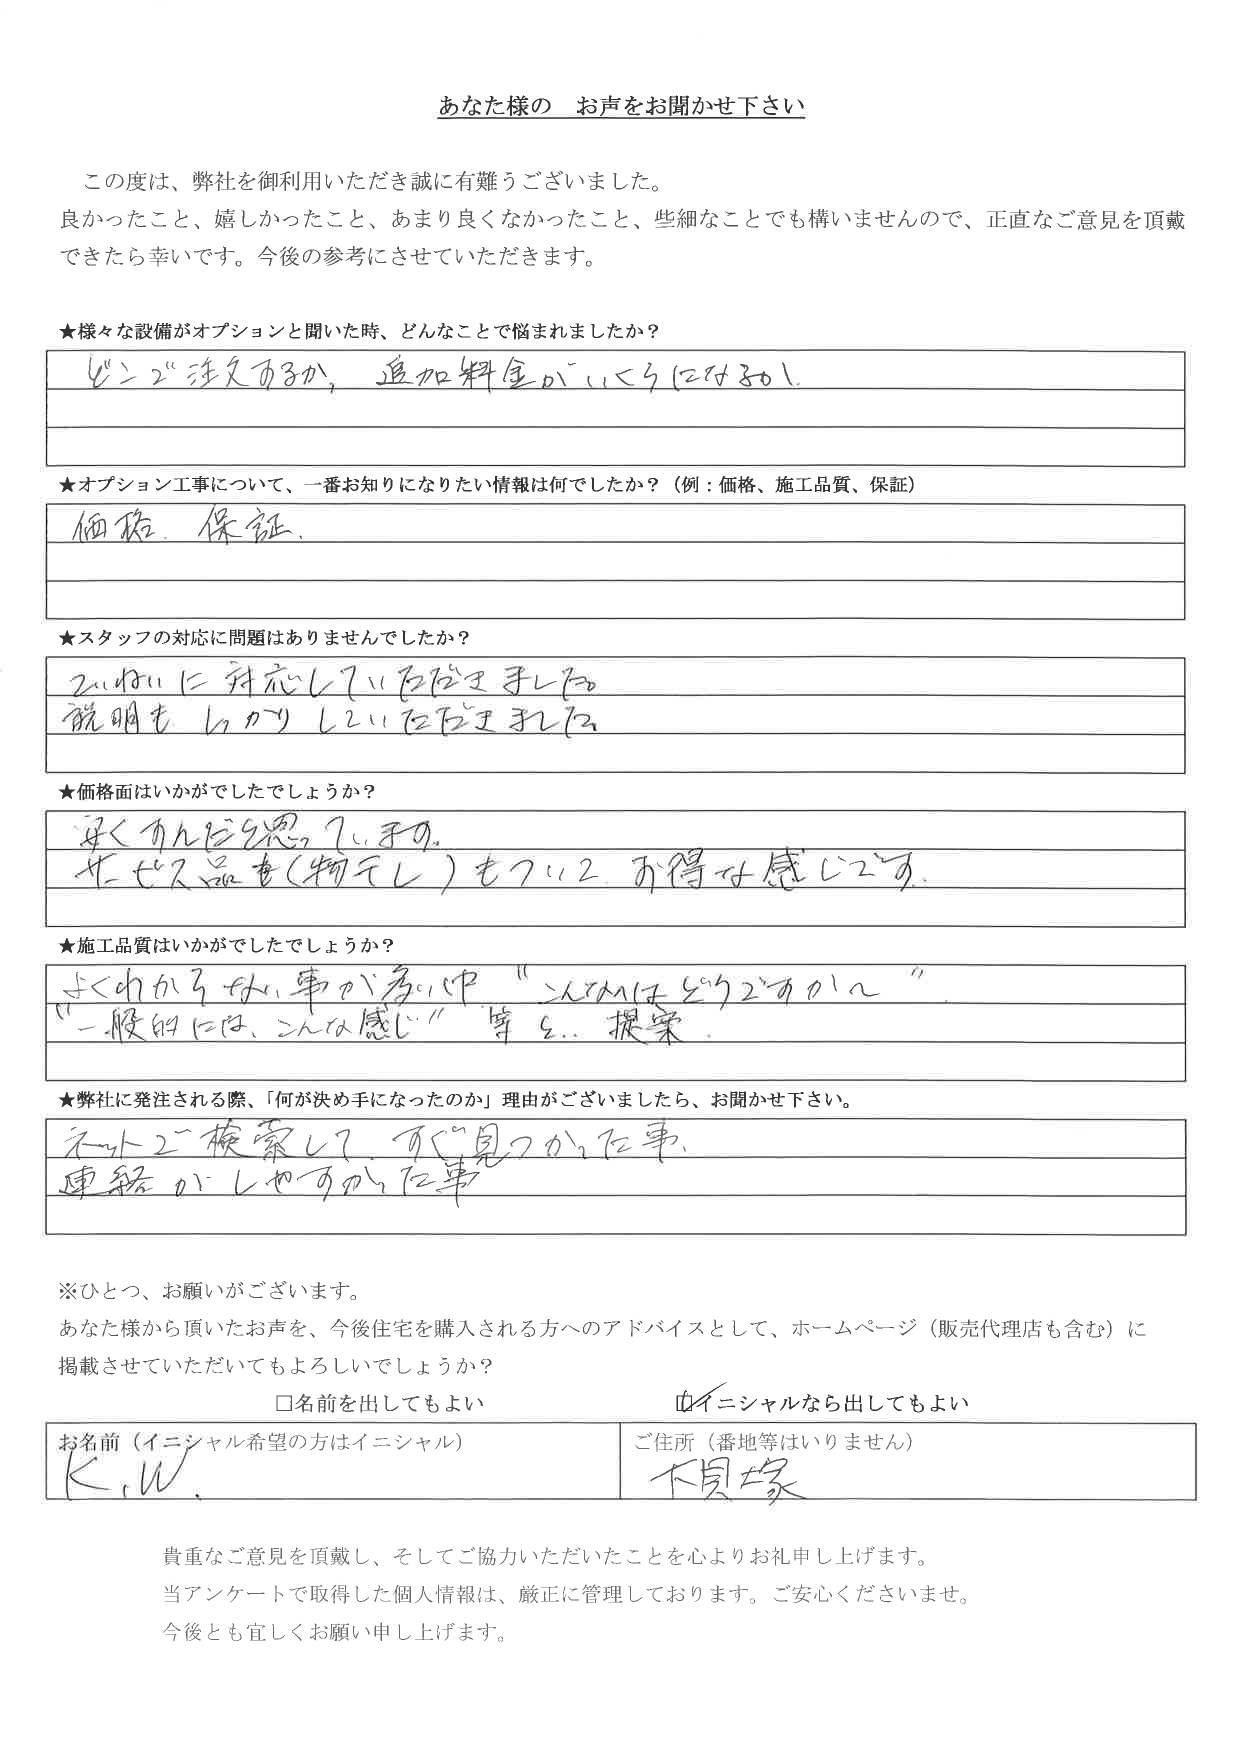 あなた様の　お声をお聞かせ下さい
この度は、弊社を御利用いただき誠に有難うございました。
良かったこと、嬉しかったこと、あまり良くなかったこと、些細なことでも構いませんので、正直なご意見を頂戴
できたら幸いです。今後の参考にさせていただきます。
★様々な設備がオプションと聞いた時、どんなことで悩まれましたか？
どこで注文するか, 追加料金がいくらになるか
★オプション工事について、一番お知りになりたい情報は何でしたか？（例：価格、施工品質、保証）
価格. 保証.
★スタッフの対応に問題はありませんでしたか？
ていねいに対応していただきました。
説明も しっかりしていただきました
★価格面はいかがでしたでしょうか？
安くすんだと思っています。
サービス品も(物干し)もついて お得な感じです.
★施工品質はいかがでしたでしょうか？
よくわからない事が多い中 "こんなのはどうですか〜"
"一般的には、こんな感じ" 等と.. 提案.
★弊社に発注される際、「何が決め手になったのか」理由がございましたら、お聞かせ下さい。
ネットで検索して すぐ見つかった事.
連絡が しやすかった事
※ひとつ、お願いがございます。
あなた様から頂いたお声を、今後住宅を購入される方へのアドバイスとして、ホームページ（販売代理店も含む）に
掲載させていただいてもよろしいでしょうか？
□名前を出してもよい ☑イニシャルなら出してもよい
お名前（イニシャル希望の方はイニシャル） ご住所（番地等はいりません）
K.W. 下貝塚
貴重なご意見を頂戴し、そしてご協力いただいたことを心よりお礼申し上げます。
当アンケートで取得した個人情報は、厳正に管理しております。ご安心くださいませ。
今後とも宜しくお願い申し上げます。